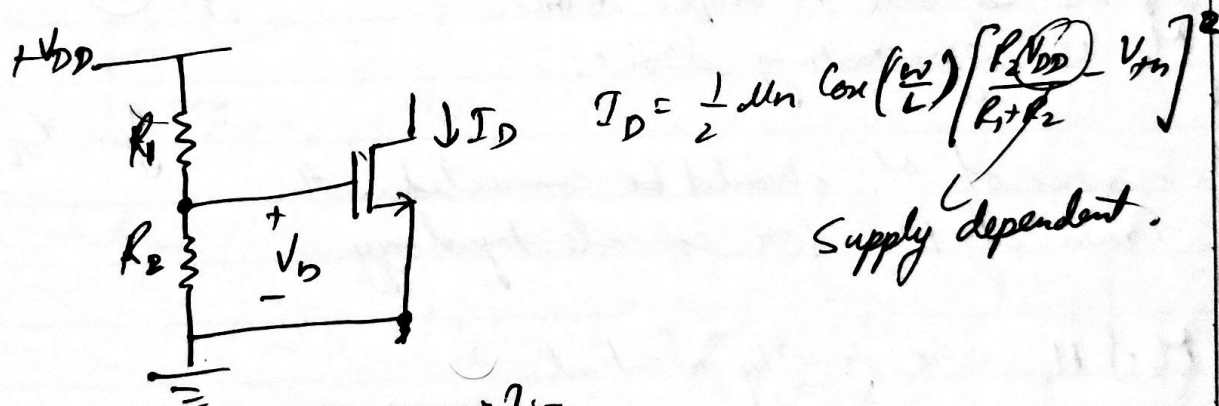 +VDD
R1
R2
+
VD
-
↓ ID
ID = 1/2 μn Cox (W/L) [R2 VDD / R1+R2 - Vtn]²
Supply dependent.